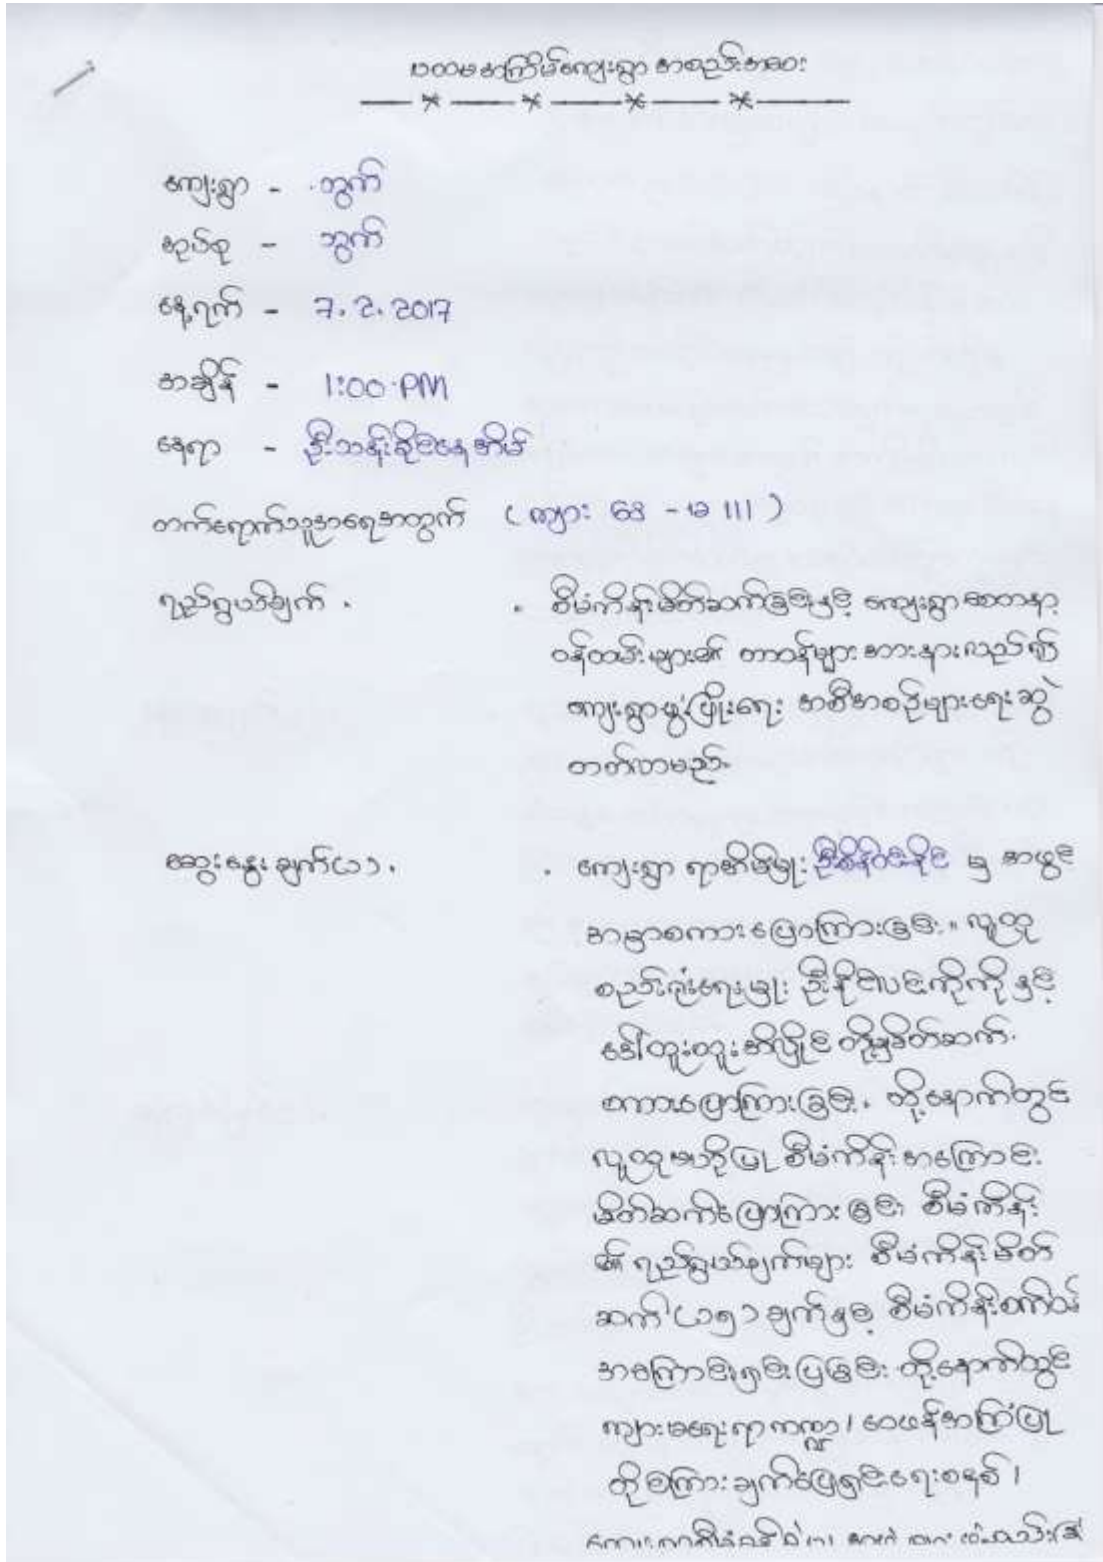 ပထမအကြိမ်ကျေးရွာ အစည်းအဝေး
ကျေးရွာ - ဘွက်
အုပ်စု - ဘွက်
နေ့ရက် - 7.2.2017
အချိန် - 1:00 PM
နေရာ - ဦးသန်းခိုင်နေအိမ်
တက်ရောက်သူအရေအတွက် (ကျား 63 - မ 111)
ရည်ရွယ်ချက် . . စီမံကိန်းမိတ်ဆက်ခြင်းနှင့် ကျေးရွာစေတနာ့
ဝန်ထမ်းများ၏ တာဝန်များအားနားလည်၍
ကျေးရွာဖွံ့ဖြိုးရေး အစီအစဉ်များရေးဆွဲ
တတ်လာမည်.
ဆွေးနွေးချက်(၁). . ကျေးရွာ ရာအိမ်မှူး မှ အဖွင့်
အမှာစကားပြောကြားခြင်း. လူထု
စည်းရုံးရေးမှူး ဦးနိုင်လင်းကိုကို နှင့်
ဒေါ်ထူးထူးအိလှိုင် တို့မှမိတ်ဆက်.
စကားပြောကြားခြင်း. ထို့နောက်တွင်
လူထုဗဟိုပြု စီမံကိန်းအကြောင်း
မိတ်ဆက်ပြောကြားခြင်း စီမံကိန်း
၏ ရည်ရွယ်ချက်များ စီမံကိန်းမိတ်
ဆက် (၁၅) ချက်နှင့် စီမံကိန်းစက်ဝန်း
အကြောင်းရှင်းပြခြင်း ထို့နောက်တွင်
ကျားမရေးရာကဏ္ဍ၊ ဝေဖန်အကြံပြု
တိုင်ကြားချက်ဖြေရှင်းရေးစနစ်၊